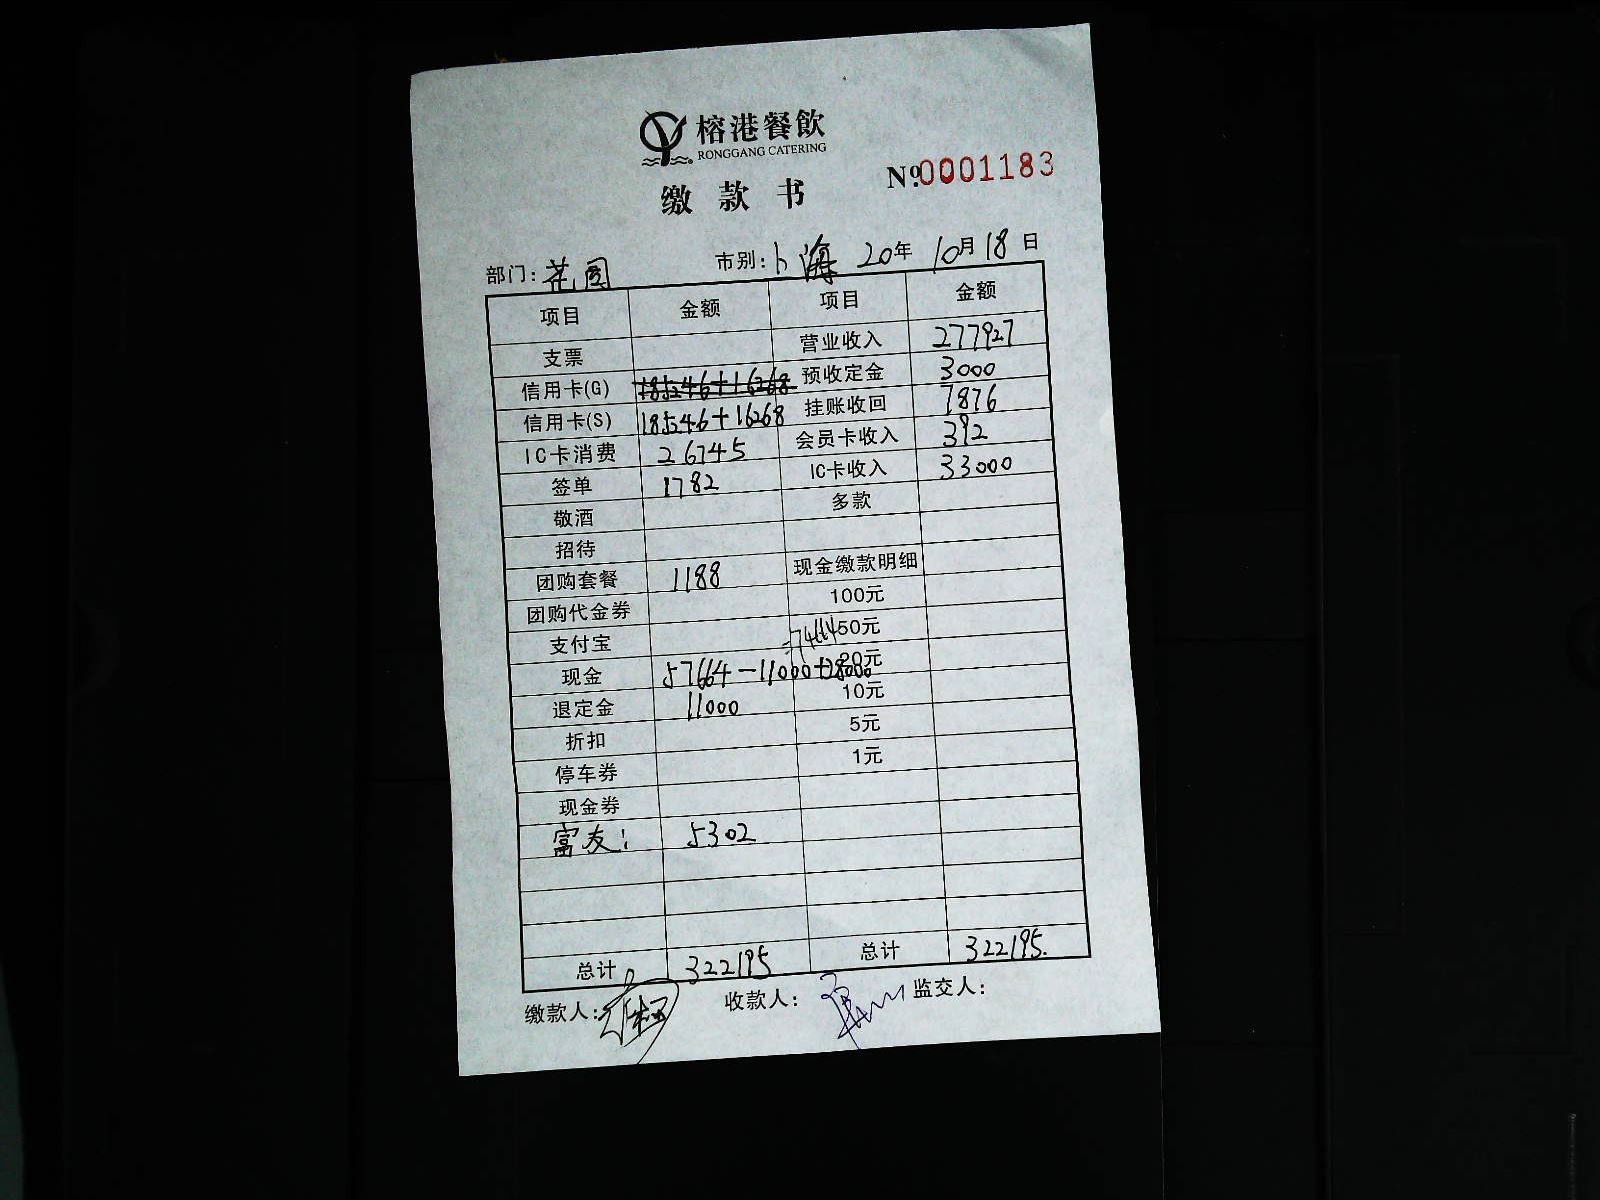 榕港餐飲
RONGGANG CATERING
缴款书
№0001183
部门: 花园 市别: 上海 20年 10月 18日
项目 金额 项目 金额
支票 营业收入 277927
信用卡(G) 185246+16268 预收定金 3000
信用卡(S) 185246+16268 挂账收回 7876
IC卡消费 26745 会员卡收入 392
签单 1782 IC卡收入 33000
敬酒 多款
招待
团购套餐 1188 现金缴款明细
团购代金券 100元
支付宝 =74664 50元
现金 57664-11000+28000 20元
退定金 11000 10元
折扣 5元
停车券 1元
现金券
富友: 5302
总计 322195 总计 322195.
缴款人: 收款人: 监交人: